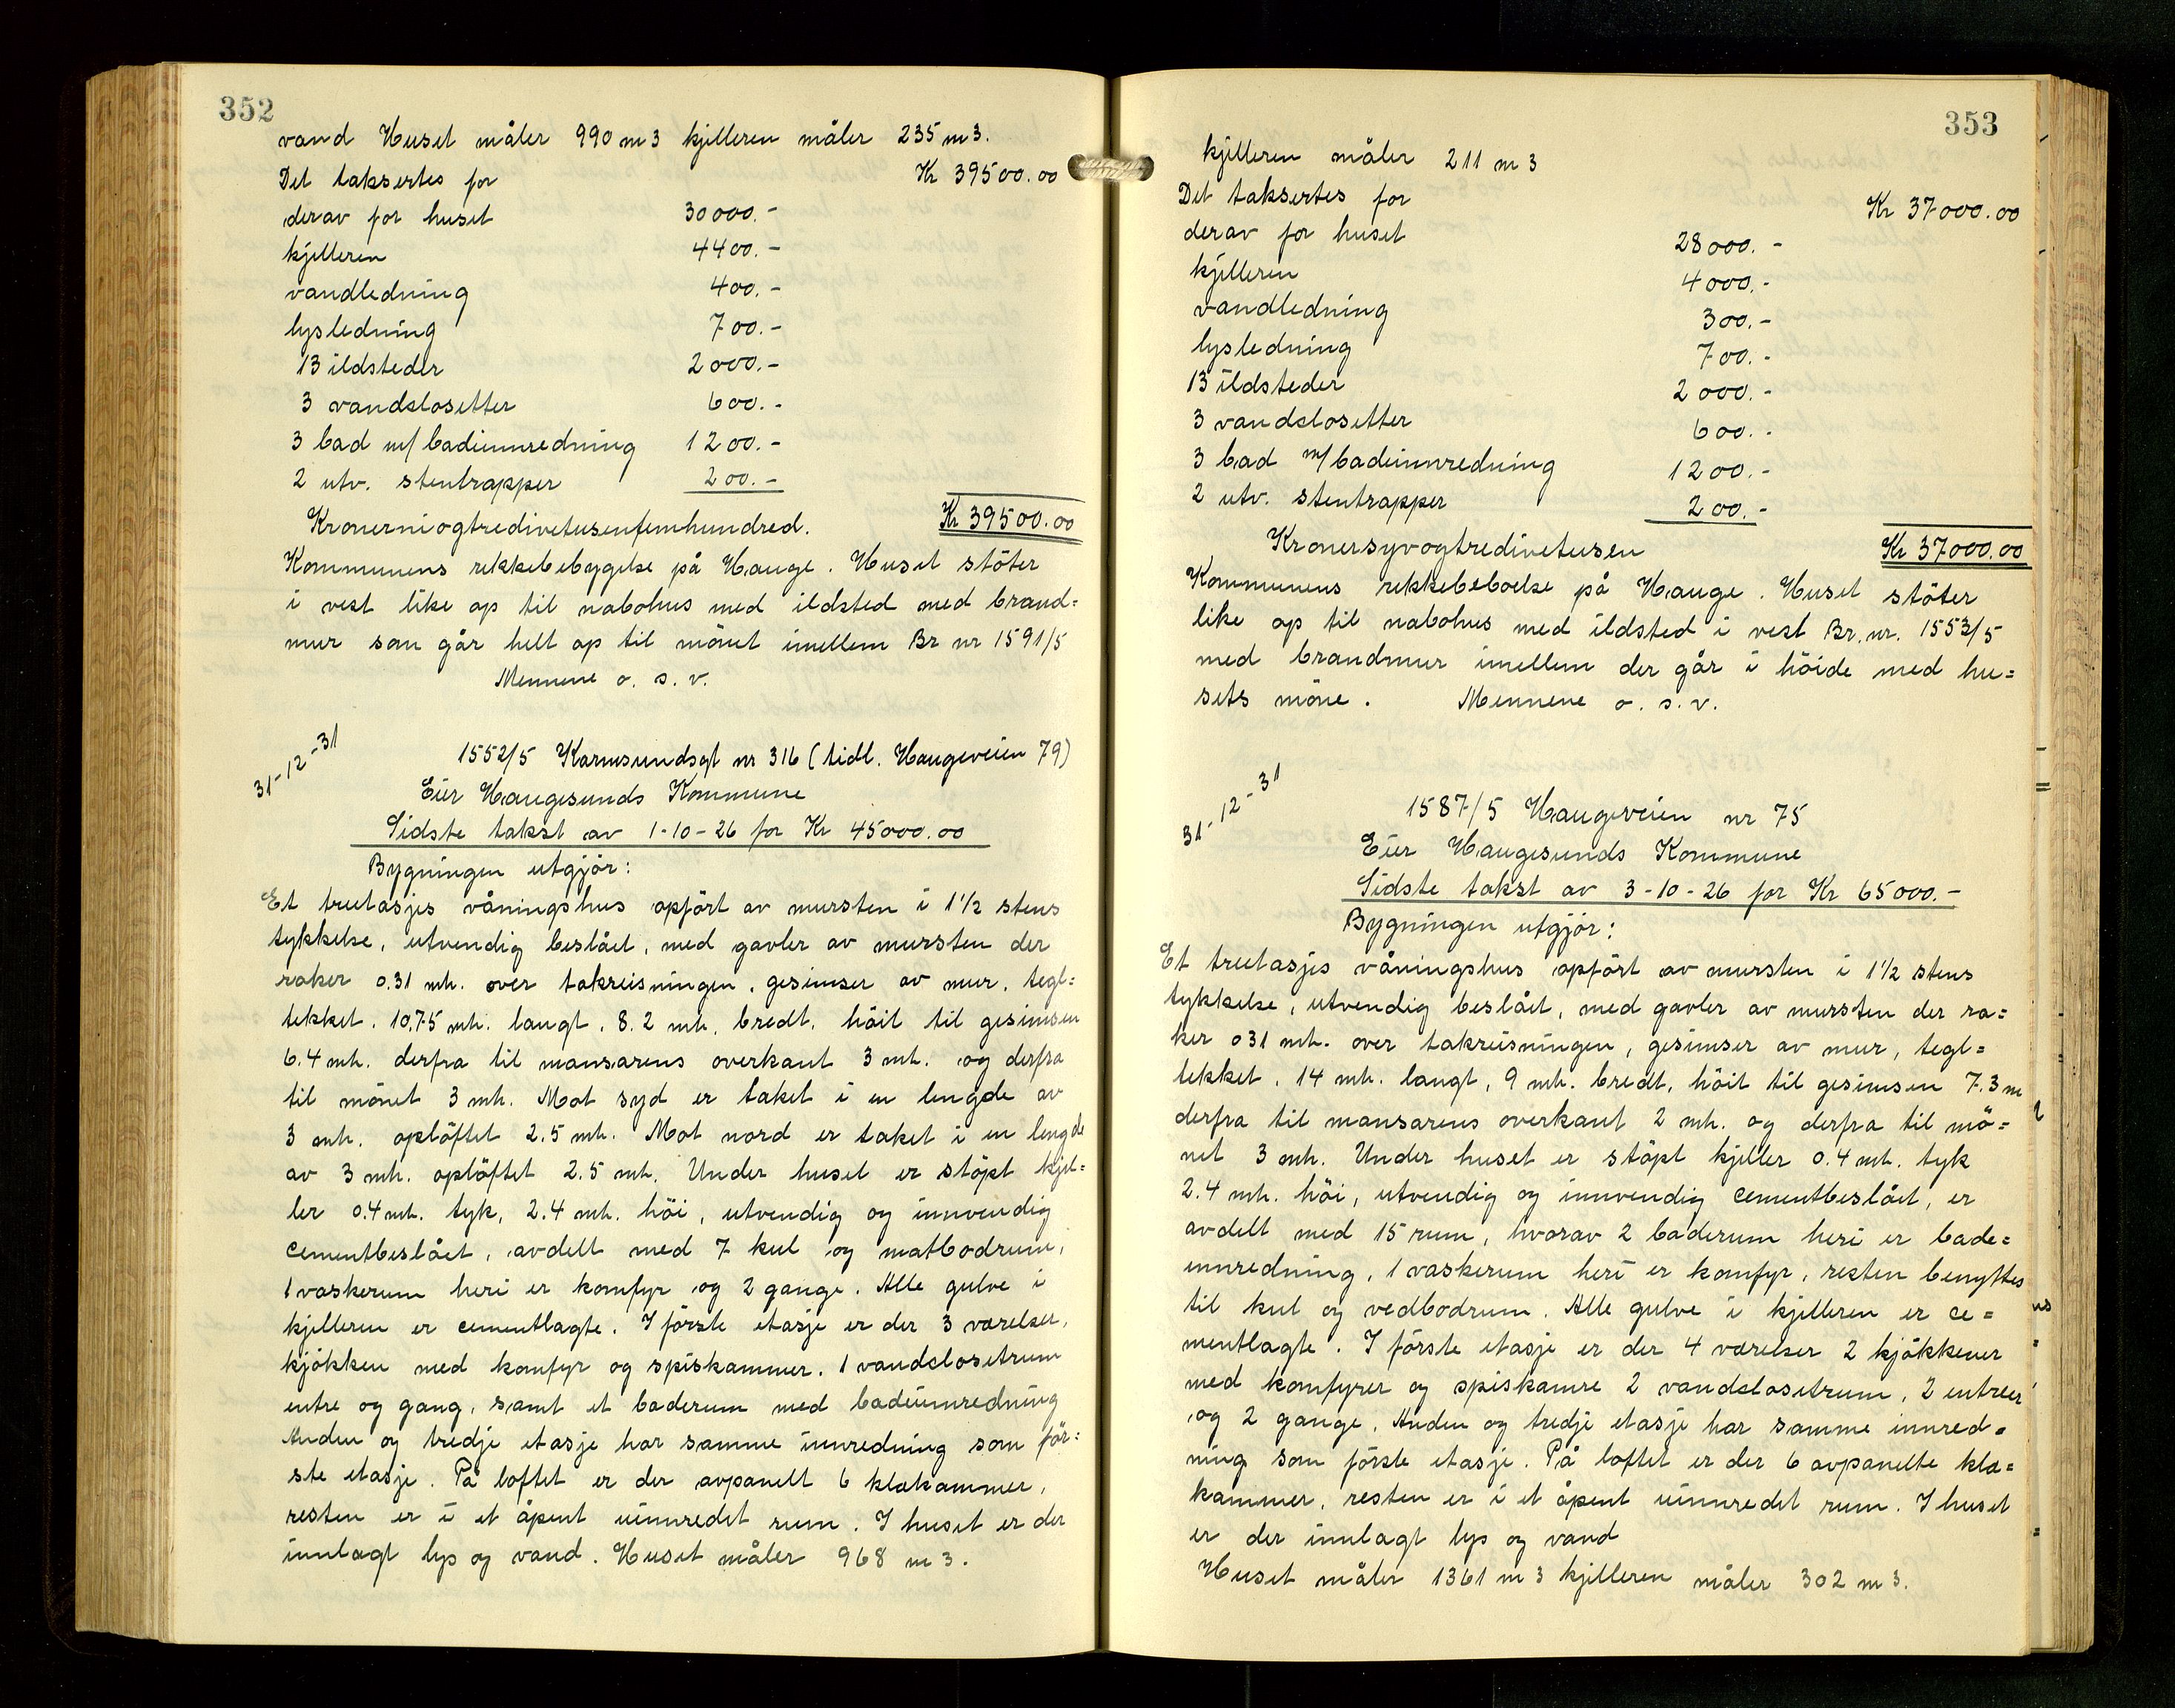 352
vand Huset måler 990 m3 kjelleren måler 235 m3.
Det taksertes for Kr 39500.00
derav for huset 30000.-
kjelleren 4400.-
vandledning 400.-
lysledning 700.-
13 ildsteder 2000.-
3 vandclosetter 600.-
3 bad m/ badeinnredning 1200.-
2 utv. stentrapper 200.-
Kronerniogtredivetusenfemhundred. Kr 39500.00
Kommunens rekkebebygelse på Hauge. Huset stöter
i vest like op til nabohus med ildsted med brand=
mur som går helt op til mönet imellem Br nr 1591/5
Mennene o. s. v.
31-12-31
1552/5 Karmsundsgt nr 316 (tidl. Haugeveien 79)
Eier Haugesunds Kommune
Sidste takst av 1-10-26 for Kr 45000.00
Bygningen utgjör:
Et treetasjes våningshus opfört av mursten i 1 1/2 stens
tykkelse, utvendig beslået, med gavler av mursten der
raker 0.31 mtr. over takreisningen, gesimser av mur, tegl=
tekket. 10.75 mtr. langt, 8.2 mtr. bredt, höit til gesimsen
6.4 mtr. derfra til mansarens overkant 3 mtr. og derfra
til mönet 3 mtr. Mot syd er taket i en lengde av
3 mtr. oplöftet 2.5 mtr. Mot nord er taket i en lengde
av 3 mtr. oplöftet 2.5 mtr. Under huset er stöpt kjel=
ler 0.4 mtr. tyk, 2.4 mtr. höi, utvendig og innvendig
cementbeslået, avdelt med 7 kul og matbodrum,
1 vaskerum heri er komfyr og 2 gange. Alle gulve i
kjelleren er cementlagte. I förste etasje er der 3 værelser,
kjökken med komfyr og spiskammer. 1 vandclosetrum
entre og gang, samt et baderum med badeinnredning
Anden og tredje etasje har samme innredning som för=
ste etasje. På loftet er der avpanelt 6 klækammer,
resten er i et åpent uinnredet rum. I huset er der
innlagt lys og vand. Huset måler 968 m3.
353
kjelleren måler 211 m3
Det taksertes for Kr 37000.00
derav for huset 28000.-
kjelleren 4000.-
vandledning 300.-
lysledning 700.-
13 ildsteder 2000.-
3 vandclosetter 600.-
3 bad m/badeinnredning 1200.-
2 utv. stentrapper 200.-
Kronersyvogtredivetusen Kr 37000.00
Kommunens rekkebeboelse på Hauge. Huset stöter
like op til nabohus med ildsted i vest Br. nr. 1553/5
med brandmur imellem der går i höide med hu=
sets möne. Mennene o. s. v.
31-12-31
1587/5 Haugeveien nr 75
Eier Haugesunds Kommune
Sidste takst av 3-10-26 for Kr 65000.-
Bygningen utgjör:
Et treetasjes våningshus opfört av mursten i 1 1/2 stens
tykkelse, utvendig beslået, med gavler av mursten der ra=
ker 031 mtr. over takreisningen, gesimser av mur, tegl=
tekket. 14 mtr. langt, 9 mtr. bredt, höit til gesimsen 7.3 m
derfra til mansarens overkant 2 mtr. og derfra til mö=
net 3 mtr. Under huset er stöpt kjeller 0.4 mtr. tyk
2.4 mtr. höi, utvendig og innvendig cementbeslået, er
avdelt med 15 rum, hvorav 2 baderum heri er bade=
innredning, 1 vaskerum heri er komfyr, resten benyttes
til kul og vedbodrum. Alle gulve i kjelleren er ce=
mentlagte. I förste etasje er der 4 værelser 2 kjökkener
med komfyrer og spiskamre 2 vandclosetrum, 2 entreer
og 2 gange. Anden og tredje etasje har samme innred=
ning som förste etasje. På loftet er der 6 avpanelte klæ=
kammer, resten er i et åpent uinnredet rum. I huset
er der innlagt lys og vand
Huset måler 1361 m3 kjelleren måler 302 m3.